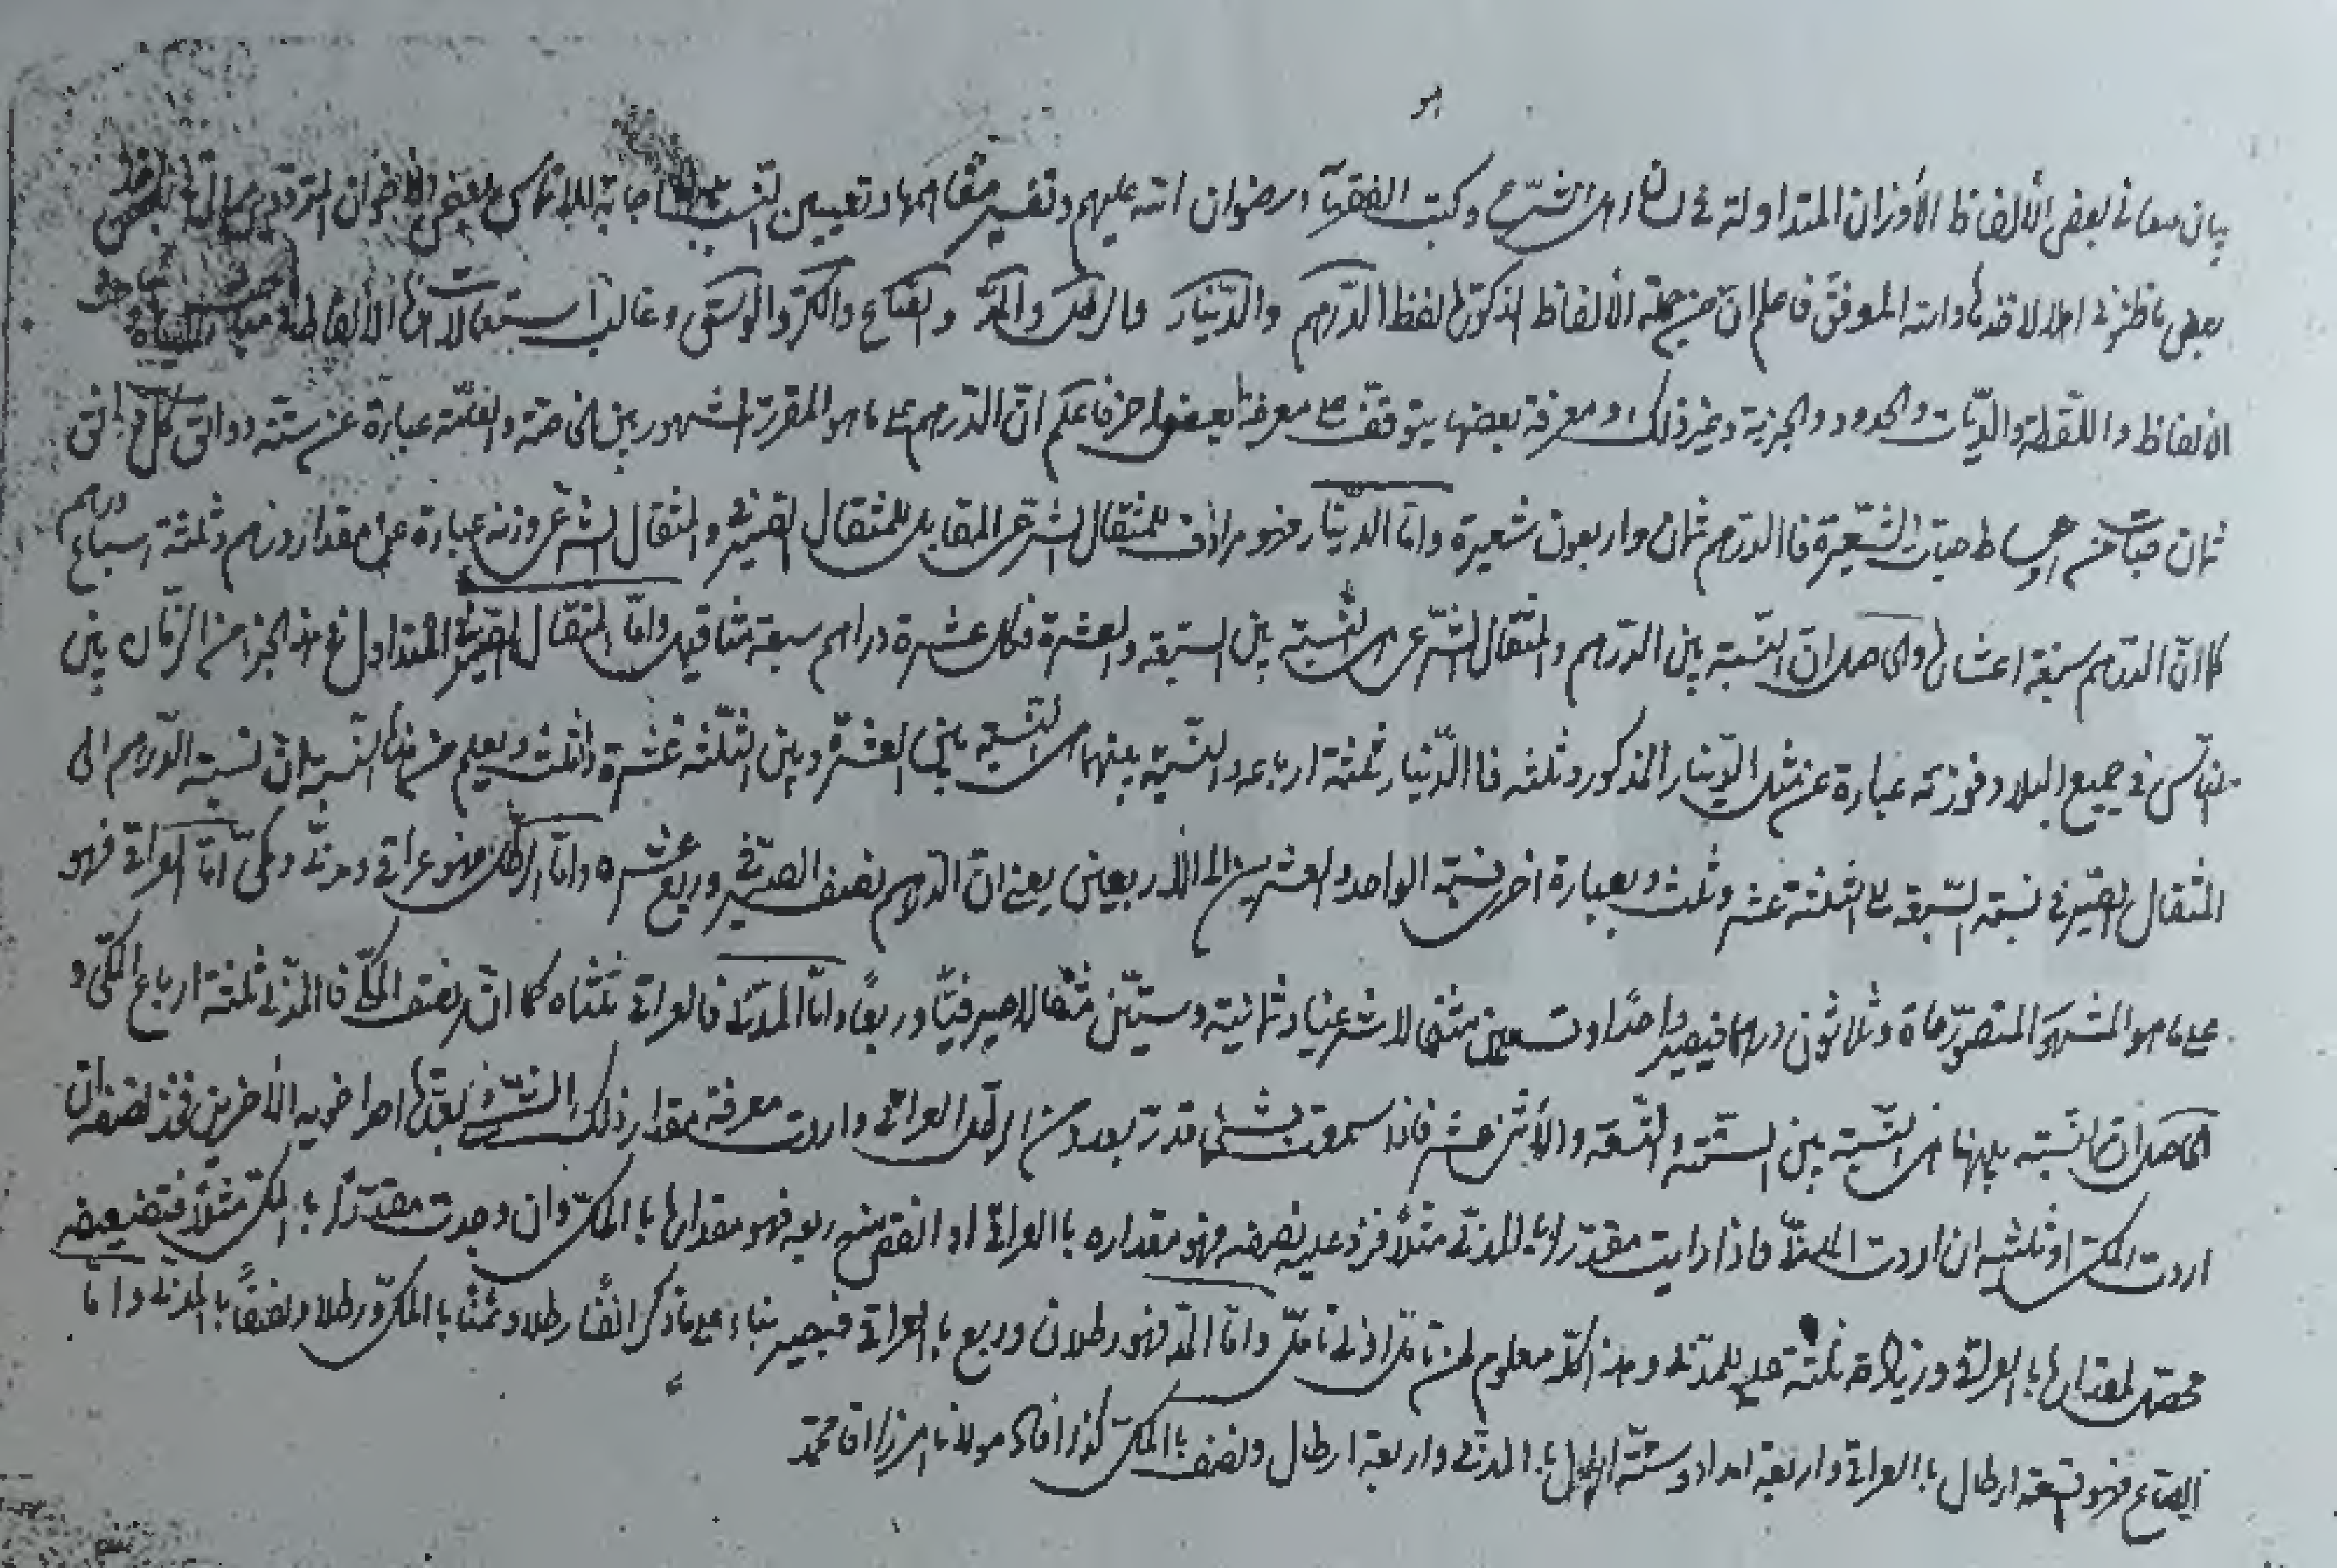 هو
بيان معاني بعض الألفاظ الأوزان المتداولة في لسان اهل الشرع وكتب الفقهآء رضوان الله عليهم وتفسير مفاهيمها وتعيين النسب اجابة لالتماس بعض الاخوان
بعض والله الموفق فاعلم ان من جملة الألفاظ المذكورة لفظ الدرهم والدينار والرطل والمد والصاع والكر والوسق وغالب استعمالات هذه الألفاظ
الالفاظ واللقطة والديات والحدود والجزية وغير ذلك ومعرفة بعضها يتوقف على معرفة بعض اخر فاعلم انّ الدرهم على ما هو المقرر المشهور بين الخاصة والعامّة عبارة عن ستّة دوانق كل دانق
ثمان حبات من اوساط حبات الشعيرة فالدرهم ثمان واربعون شعيرة وامّا الدينار فهو مرادف للمثقال الشرعي المقابل للمثقال الصيرفي والمثقال الشرعي وزنه عبارة عن مقدار درهم وثلثة اسباع درهم
كما انّ الدرهم سبعة اعشاره والحاصل انّ النّسبة بين الدرهم والمثقال الشّرعي هي النّسبة بين السبعة والعشرة فكل عشرة دراهم سبعة مثاقيل وامّا المثقال الصيرفي المتداول في هذا الجزء من الزّمان بين
النّاس في جميع البلاد فوزنه عبارة عن مثل الدّينار المذكور وثلثه فاالدّينار ثلثة ارباعه والنّسبة بينهما هي النّسبة بين العشرة وبين الثلثة عشرة وثلث ويعلم من هذا انّ نسبة الدّرهم الى
المثقال الصيرفي نسبة السّبعة الى الثلثة عشر وثلث وبعبارة اخرى نسبة الواحد والعشرين الى الأربعين يعني انّ الدّرهم نصف الصيرفي وربع عشره وامّا الرطل فهو عراقي ومدني ومكّي امّا العراقي فهو
على ما هو المشهور المنصور مأة وثلاثون درهما فيصير واحدًا وتسعين مثقالا شرعيّا وثمانية وستّين مثقالا صيرفيّا وربعًا وامّا المدني فالعراقي ثلثاه كما انّه نصف المكّي فالمدني ثلثة ارباع المكّي و
الحاصل انّ النّسبة بينها هي النّسبة بين الستّة والتّسعة والأثنى عشر فاذا سمعت شيئا قدر بعدد من الرطل العراقي واردت معرفة مقدار ذلك الشيء باحد اخويه الأخرين فخذ نصفه ان
اردت المكي او ثلثيه ان اردت المدني فاذا رايت مقدّرا بالمدني مثلًا فزد عليه نصفه فهو مقداره باالعراقي او انقص منه ربعه فهو مقداره باالمكّي وان وجدت مقدّرًا بالمكّي مثلًا فتضعيفه
محصّل لمقداره باالعراقي وهذا كلّه معلوم لمن تامّل ادنى تامّل وامّا المدّ فهو رطلان وربع باالعراقي فيصير بناء على ما ذكر انفًا رطلا وثمنًا باالمكّي ورطلا ونصفًا بالمدني وامّا
الصاع فهو تسعة ارطال باالعراقي واربعة امداد وستّة ارطال باالمدني واربعة ارطال ونصف باالمكي كذا افاده مولانا ميرزا اقا محمد